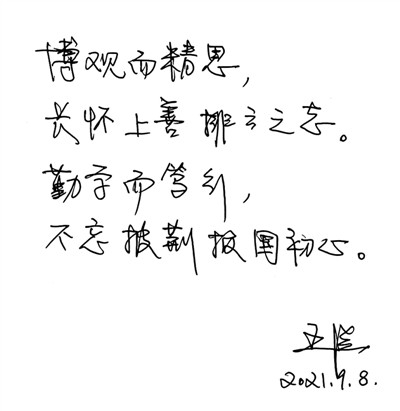 博观而精思，
长怀上善排云之志。
勤学而笃行，
不忘披荆报国初心。
2021.9.8.